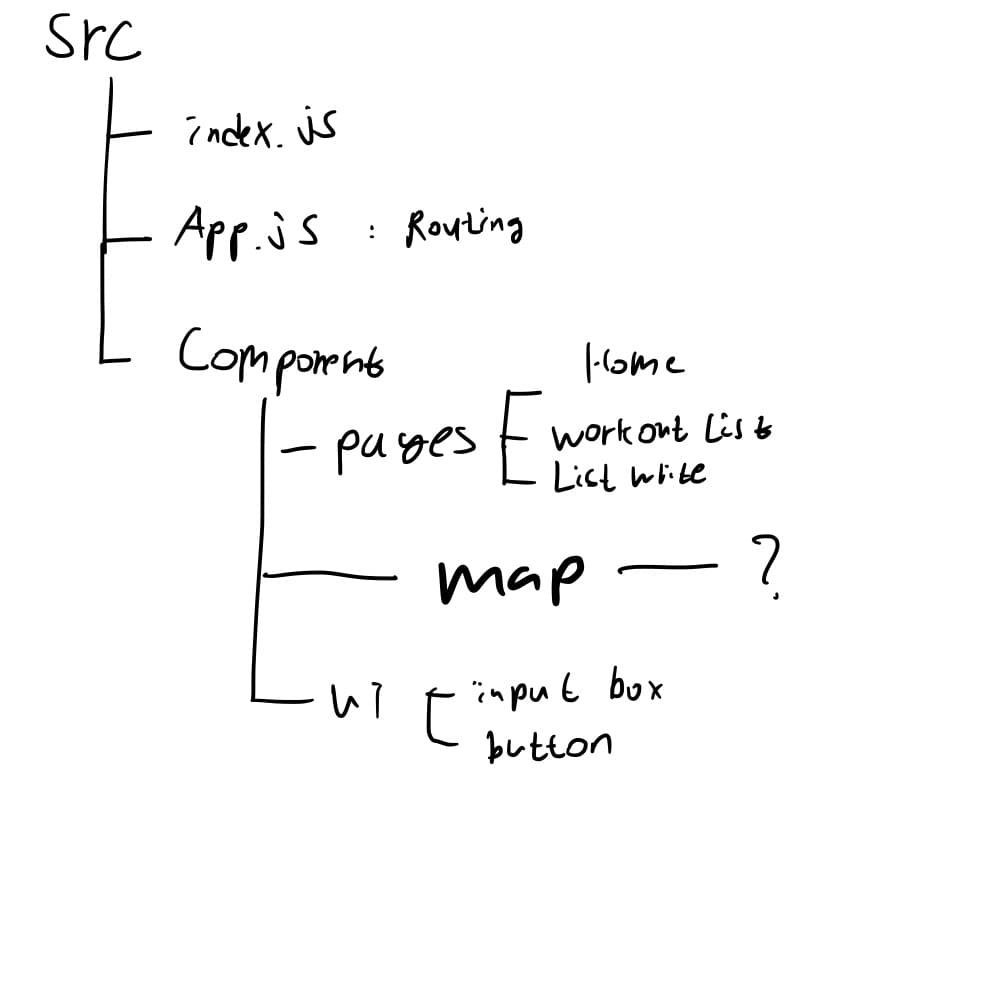 src
index.js
App.js : Routing
Component
Home
pages
workout List
List write
map — ?
UI
input box
button